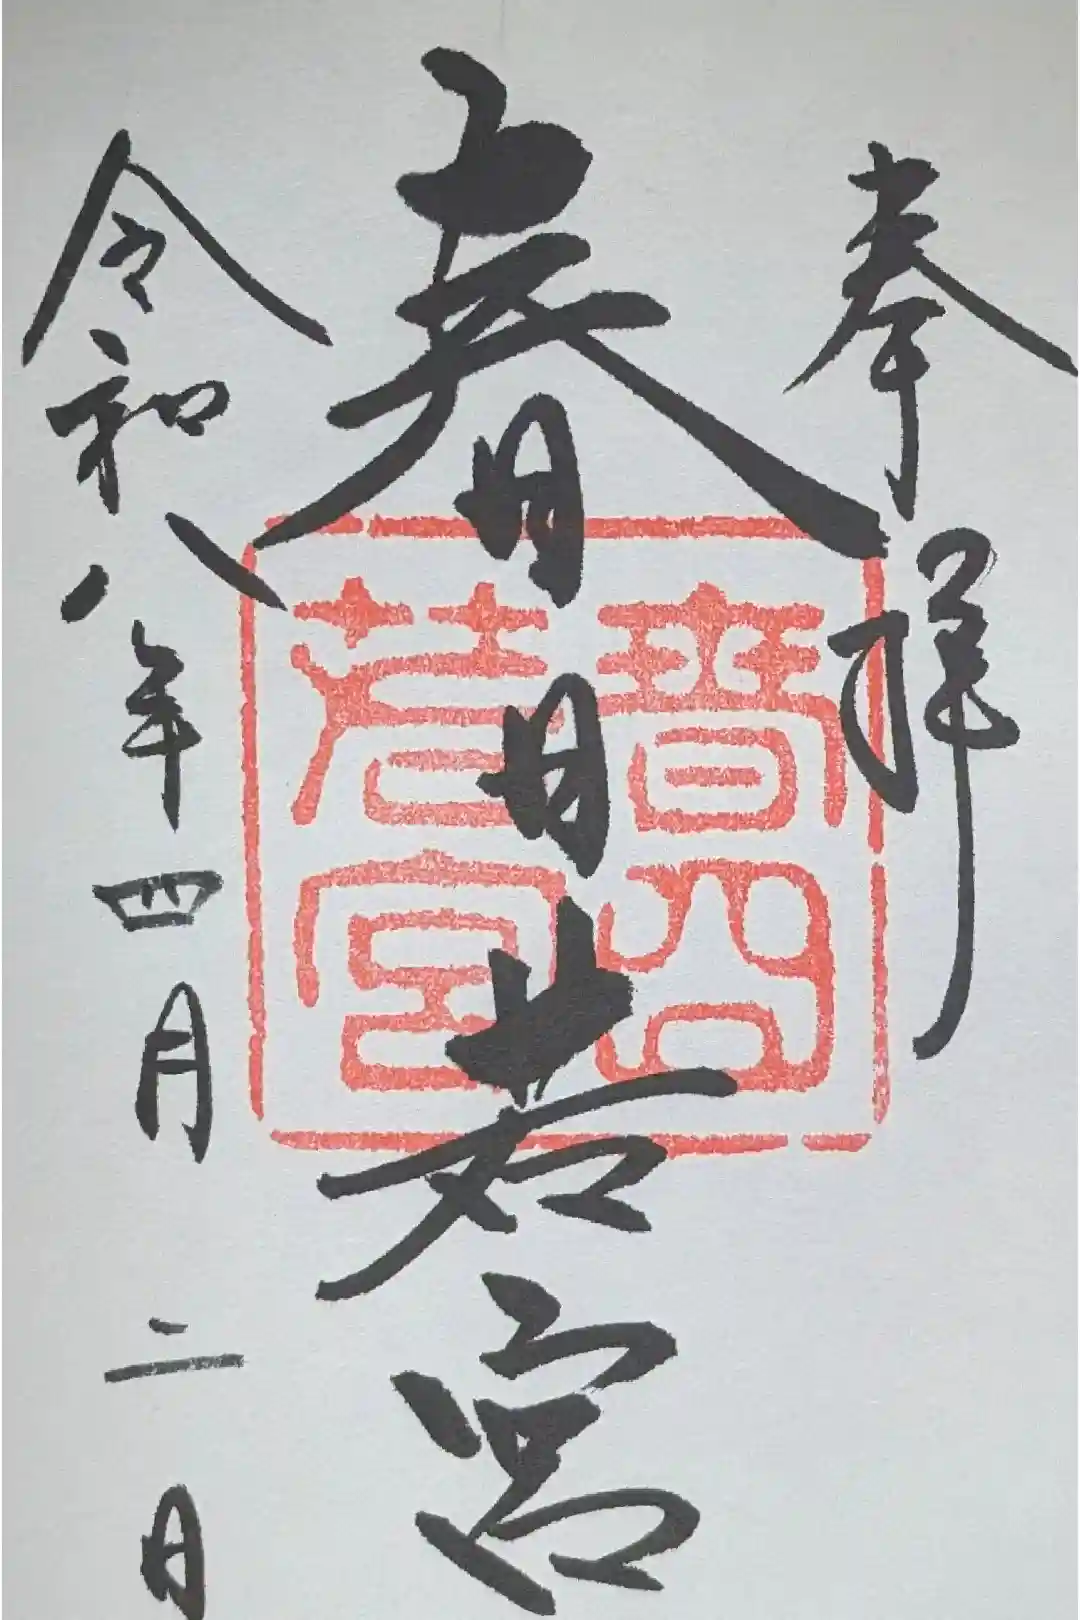 奉拝
春日若宮
令和八年四月二日
若宮